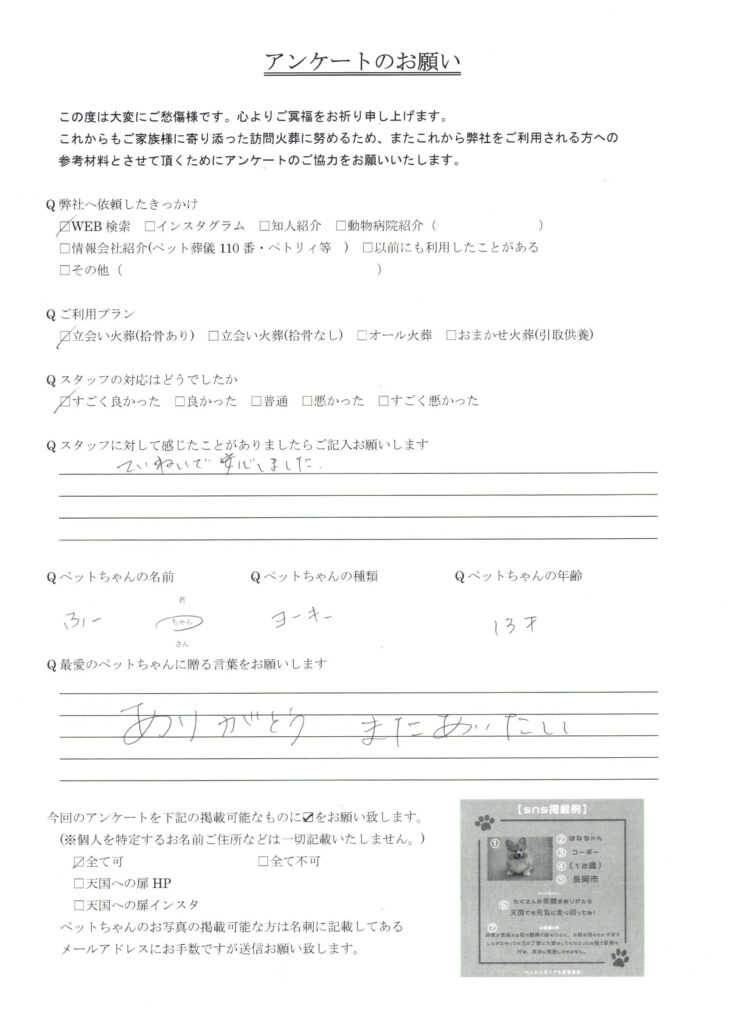 アンケートのお願い
この度は大変にご愁傷様です。心よりご冥福をお祈り申し上げます。
これからもご家族様に寄り添った訪問火葬に努めるため、またこれから弊社をご利用される方への
参考材料とさせて頂くためにアンケートのご協力をお願いいたします。
Q 弊社へ依頼したきっかけ
☑WEB 検索 □インスタグラム □知人紹介 □動物病院紹介（ ）
□情報会社紹介(ペット葬儀 110 番・ペトリィ等 ) □以前にも利用したことがある
□その他（ ）
Q ご利用プラン
☑立会い火葬(拾骨あり) □立会い火葬(拾骨なし) □オール火葬 □おまかせ火葬(引取供養)
Q スタッフの対応はどうでしたか
☑すごく良かった □良かった □普通 □悪かった □すごく悪かった
Q スタッフに対して感じたことがありましたらご記入お願いします
ていねいで安心しました.
Q ペットちゃんの名前 Q ペットちゃんの種類 Q ペットちゃんの年齢
君
ふー ちゃん ヨーキー 13才
さん
Q 最愛のペットちゃんに贈る言葉をお願いします
ありがとう またあいたいし
今回のアンケートを下記の掲載可能なものに☑をお願い致します。
(※個人を特定するお名前ご住所などは一切記載いたしません。)
☑全て可 □全て不可
□天国への扉 HP
□天国への扉インスタ
ペットちゃんのお写真の掲載可能な方は名刺に記載してある
メールアドレスにお手数ですが送信お願い致します。
【sns掲載例】
① ② はなちゃん
③ コーギー
④ (12歳)
⑤ 長岡市
⑥ たくさんの笑顔をありがとう
天国でも元気に走り回ってね!
⑦